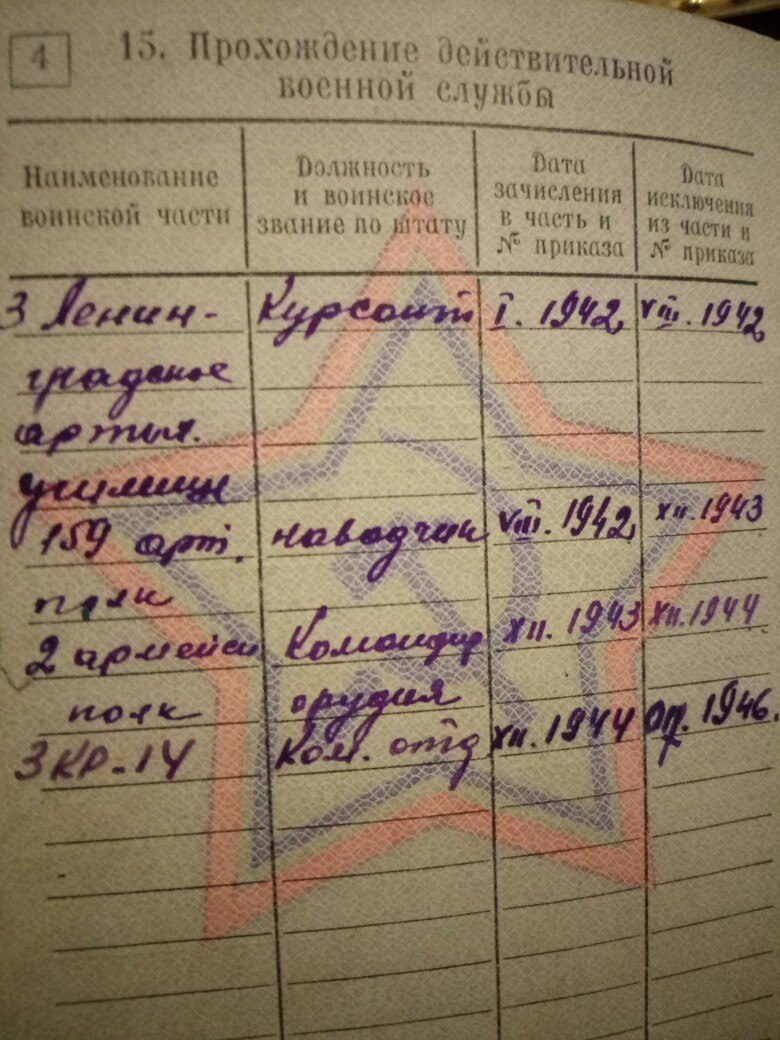 4
15. Прохождение действительной
военной службы
Наименование
воинской части
Должность
и воинское
звание по штату
Дата
зачисления
в часть и
№ приказа
Дата
исключения
из части и
№ приказа
3 Ленин- Курсант I. 1942 VIII. 1942
градское
артил.
училище
159 арт. наводчик VIII. 1942 XII. 1943
полк
2 армейск Командир XII. 1943 XII. 1944
полк орудия
ЗКР-14 Ком. отд XII. 1944 ап. 1946.